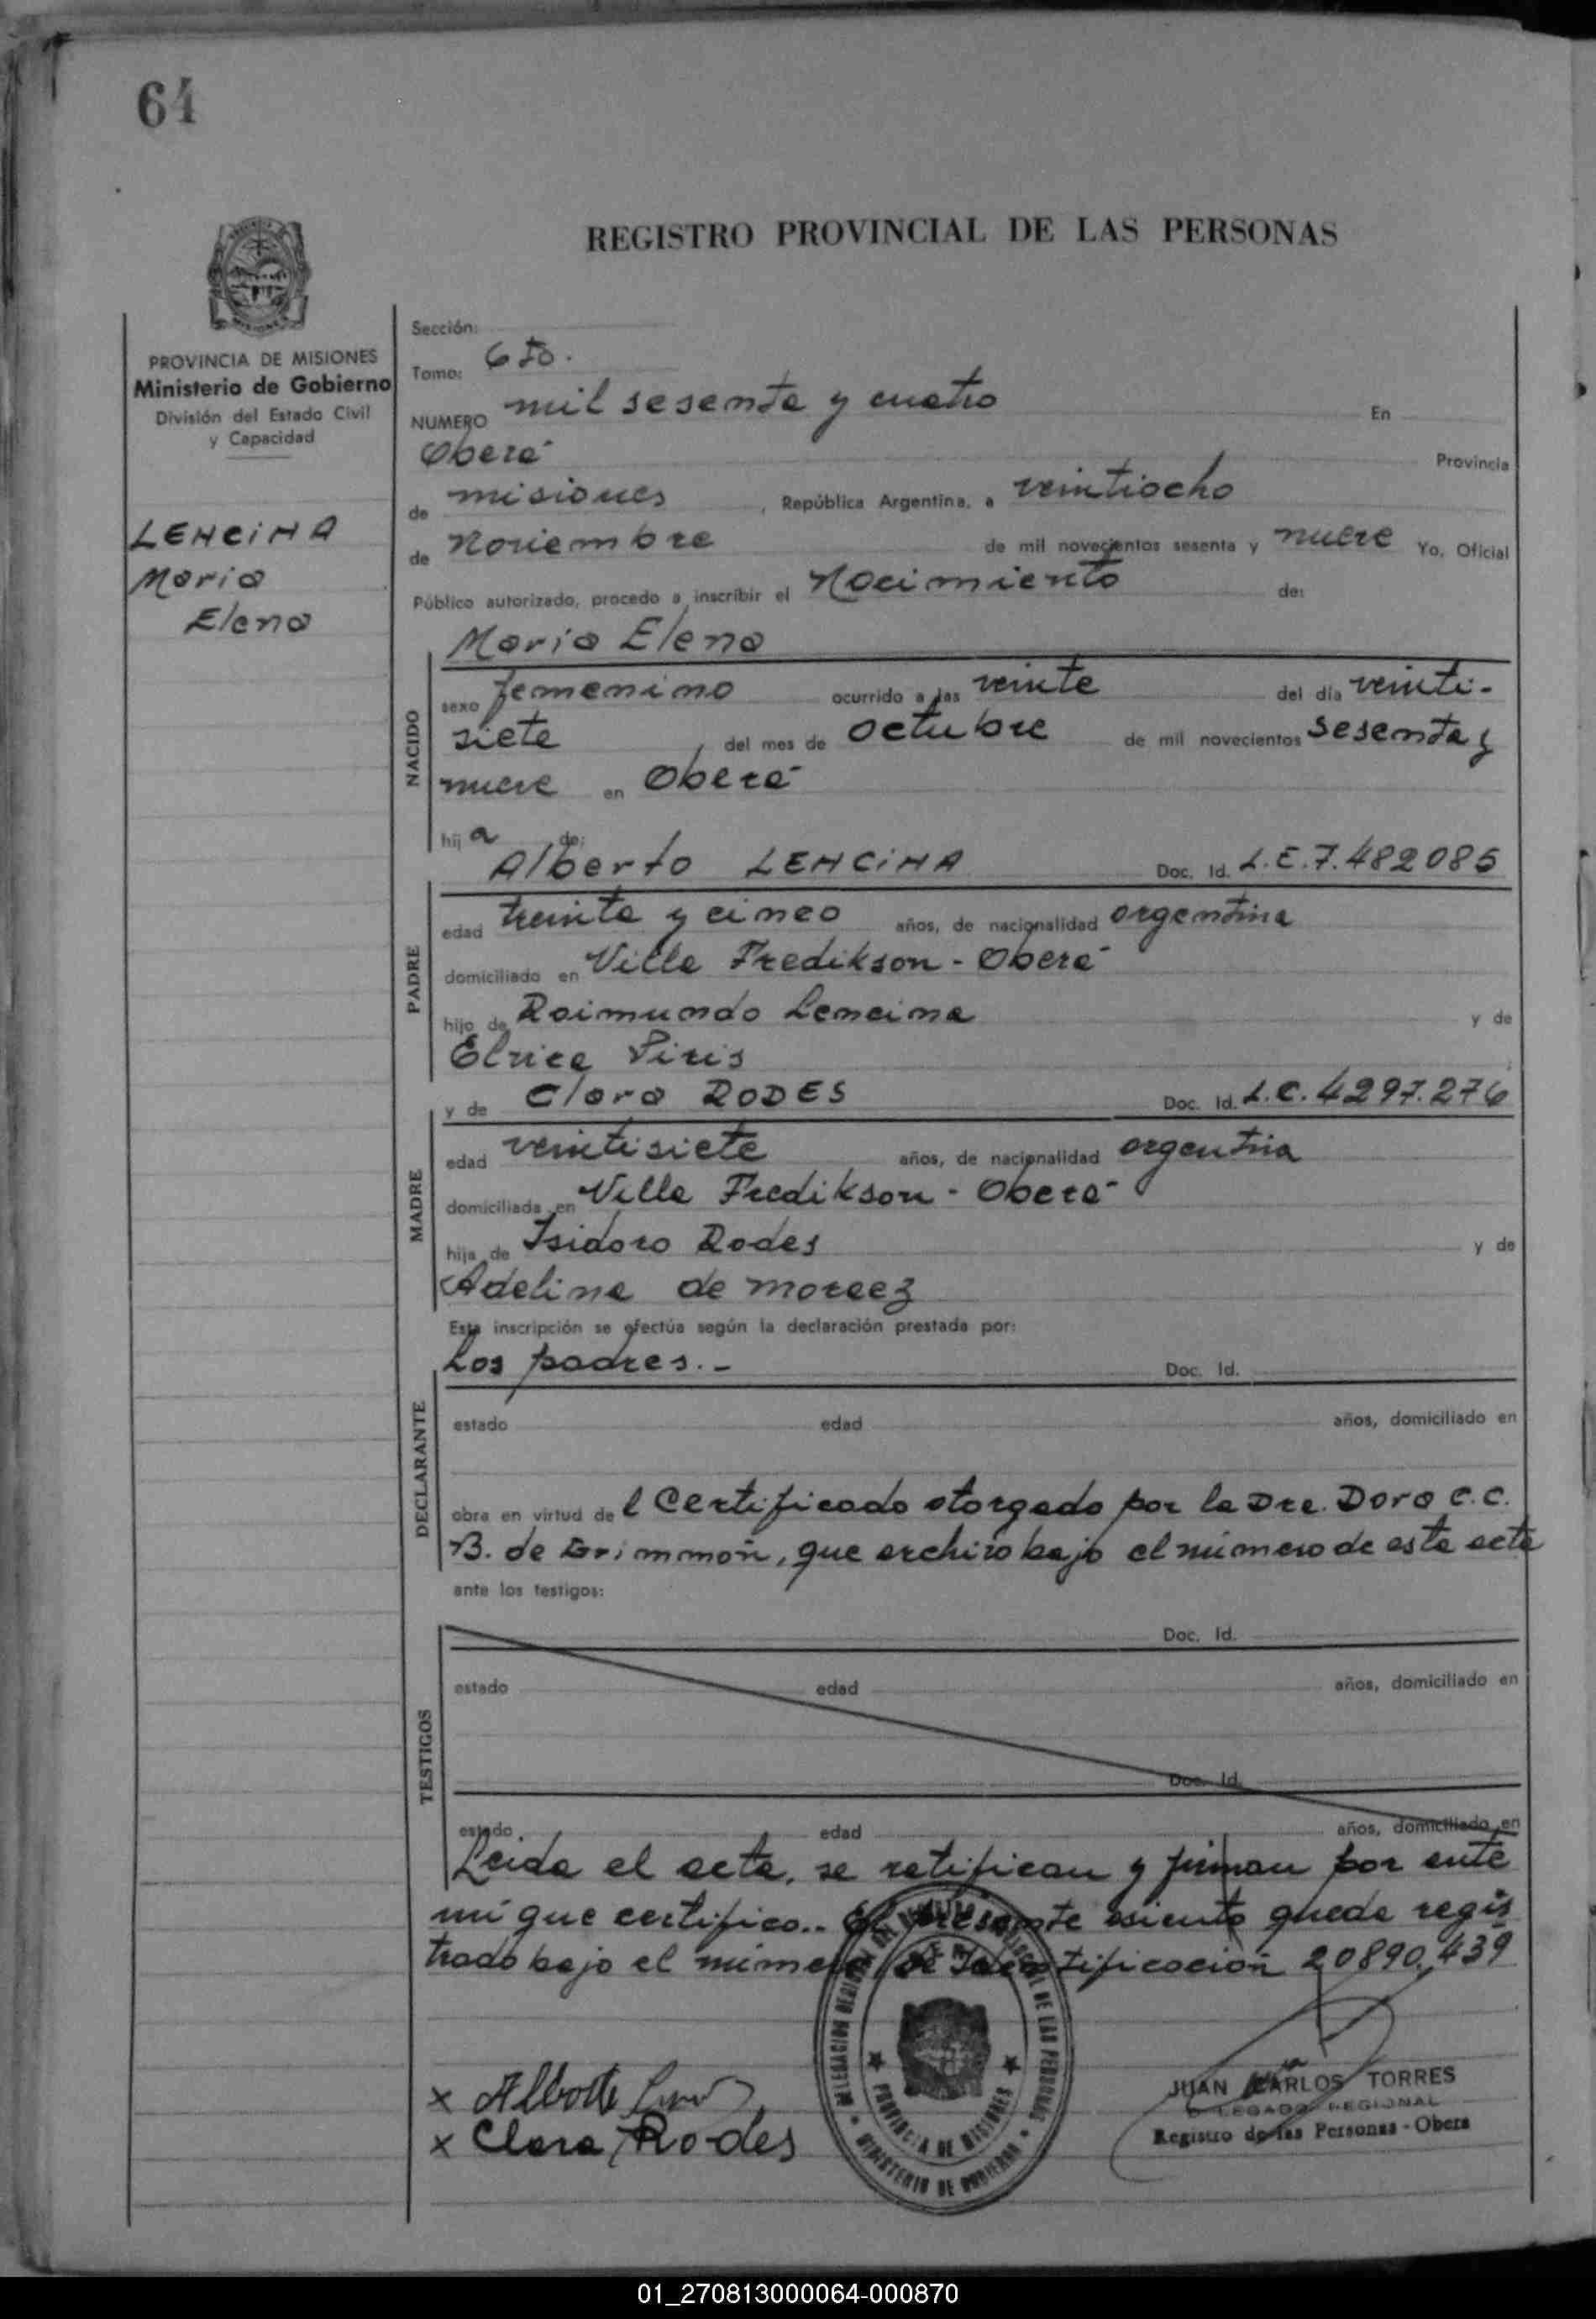 64
REGISTRO PROVINCIAL DE LAS PERSONAS
PROVINCIA DE MISIONES
Ministerio de Gobierno
División del Estado Civil
y Capacidad
LENCINA
Maria
Elena
Sección:
Tomo: 6to.
NUMERO mil sesenta y cuatro En
Oberá Provincia
de misiones, República Argentina, a veintiocho
de Noviembre de mil novecientos sesenta y nueve Yo, Oficial
Público autorizado, procedo a inscribir el Nacimiento de:
Maria Elena
NACIDO
sexo femenino ocurrido a las veinte del día veinti-
siete, del mes de octubre de mil novecientos sesenta y
nueve en Oberá
hija de:
Alberto LENCINA Doc. Id. L.E.7.482085
PADRE
edad treinta y cinco años, de nacionalidad argentina
domiciliado en Villa Fredikson - Oberá
hijo de Raimundo Lencina y de
Elvira Piris;
y de Clara RODES Doc. Id. L.C.4297.276
MADRE
edad veintisiete años, de nacionalidad argentina
domiciliada en Villa Fredikson - Oberá
hija de Isidoro Rodes y de
Adelina de moraez
Esta inscripción se efectúa según la declaración prestada por:
Los padres.- Doc. Id.
DECLARANTE
estado edad años, domiciliado en
obra en virtud del Certificado otorgado por la Dra. Dora C.C.
B. de , que archivo bajo el número de esta acta
ante los testigos:
TESTIGOS
Doc. Id.
estado edad años, domiciliado en
Doc. Id.
estado edad años, domiciliado en
Leida el acta, se ratifican y firman por ante
mí que certifico.. El presente asiento queda regis
trado bajo el número de Identificación 20890.439
x Alberto
x Clara Rodes
PROVINCIA DE MISIONES
MINISTERIO DE GOBIERNO
JUAN CARLOS TORRES
DELEGADO REGIONAL
Registro de las Personas - Obera
01_270813000064-000870